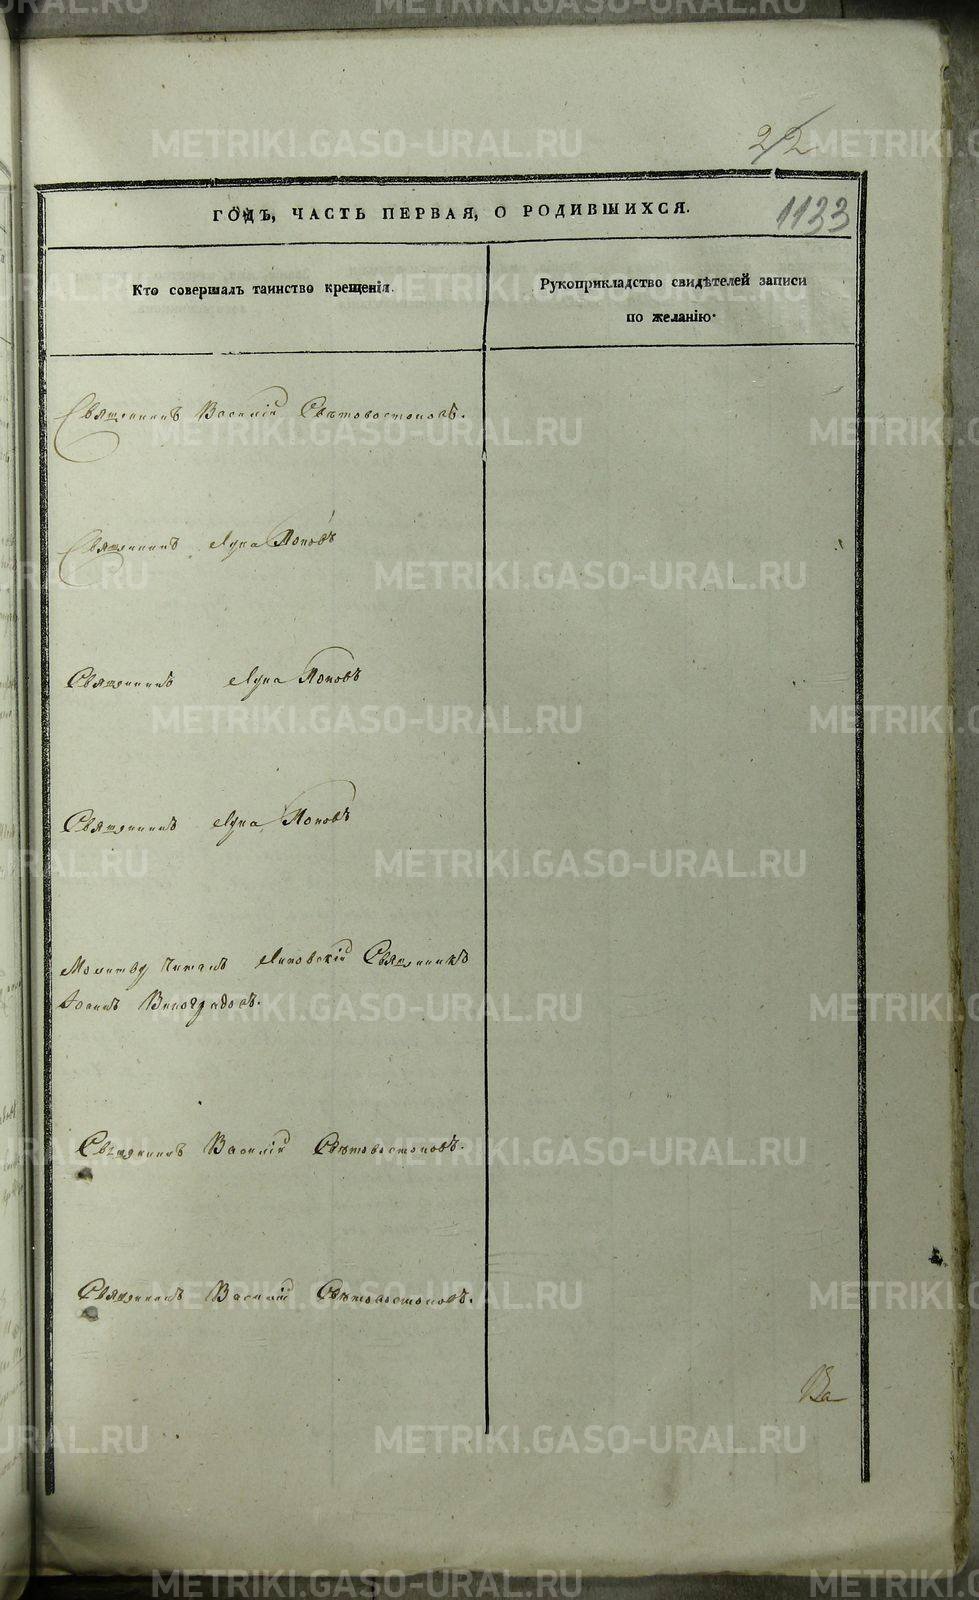 2/2
1133
ГОДЪ, ЧАСТЬ ПЕРВАЯ, О РОДИВШИХСЯ.
Кто совершалъ таинство крещенія.
Рукоприкладство свидѣтелей записи
по желанію.
Священникъ Василій Свѣтовостоковъ.
Священникъ Лука Поповъ
Священникъ Лука Поповъ
Священникъ Лука Поповъ
Молитву читалъ Липовскій Священникъ
Іоаннъ Виноградовъ.
Священникъ Василій Свѣтовостоковъ.
Священникъ Василій Свѣтовостоковъ.
Ва
METRIKI.GASO-URAL.RU